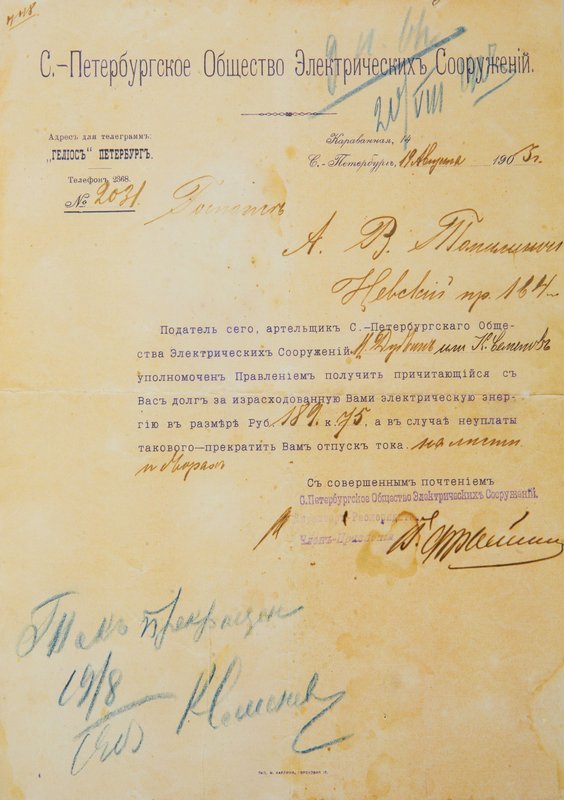 С.-Петербургское Общество Электрическихъ Сооруженій.
20/VIII
Адресъ для телеграммъ:
„ГЕЛІОСЪ" ПЕТЕРБУРГЪ.
Телефонъ 2368.
№ 2031
Караванная, 14
С.-Петербургъ, 19 Августа 1903 г.
А. В.
Невскій пр. 184
Податель сего, артельщикъ С.-Петербургскаго Обще-
ства Электрическихъ Сооруженій, или К. Семеновъ
уполномоченъ Правленіемъ получить причитающійся съ
Васъ долгъ за израсходованную Вами электрическую энер-
гію въ размѣрѣ Руб. 189 к. 75, а въ случаѣ неуплаты
такового—прекратить Вамъ отпускъ тока.
Съ совершеннымъ почтеніемъ
С.Петербургское Общество Электрическихъ Сооруженій.
Токъ прекращен
19/8
903 К Семенов